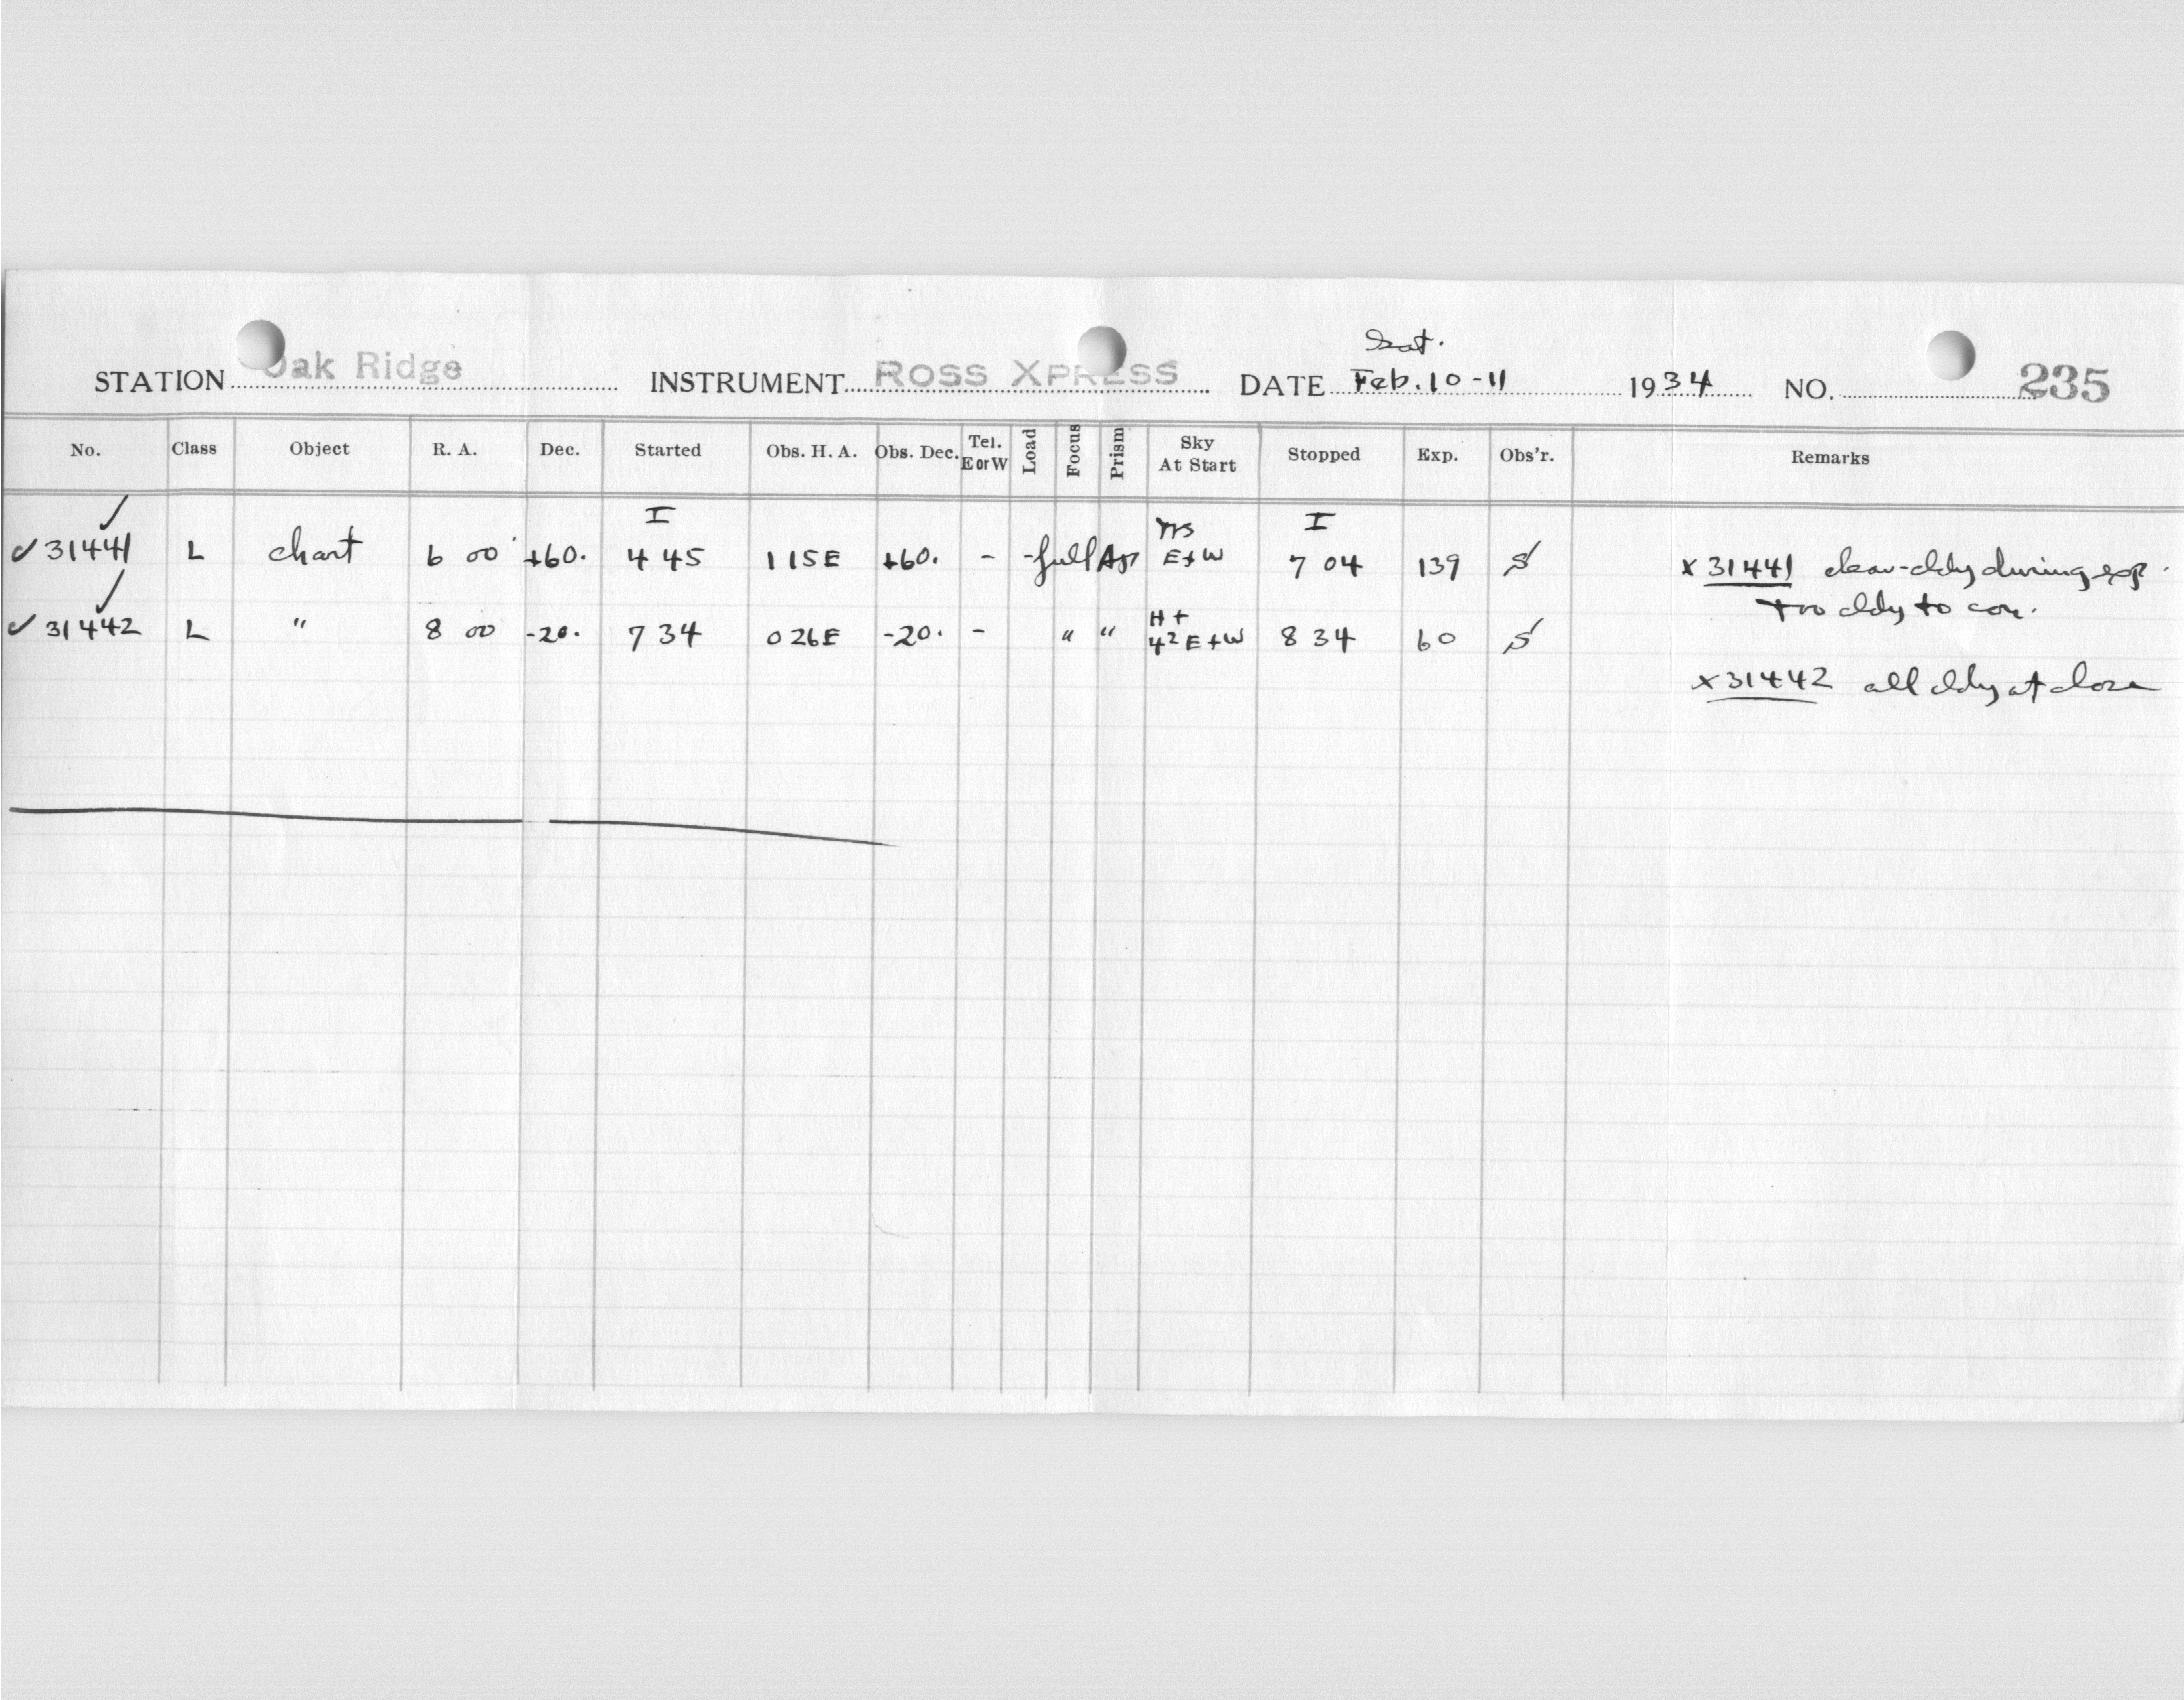 Sat.
STATION Oak Ridge INSTRUMENT ROSS XPRESS DATE Feb. 10-11 1934 NO. 235
No. Class Object R. A. Dec. Started Obs. H. A. Obs. Dec. Tel. E or W Load Focus Prism Sky At Start Stopped Exp. Obs'r. Remarks
I I
✓ 31441 L chart 6 00 +60. 4 45 1 15E +60. - - full Ap E+W 7 04 139 S x 31441 clear-cldy during exp.
too cldy to con.
✓ 31442 L " 8 00 -20. 7 34 0 26E -20. - " " H + 4² E+W 8 34 60 S
x 31442 all cldy at close